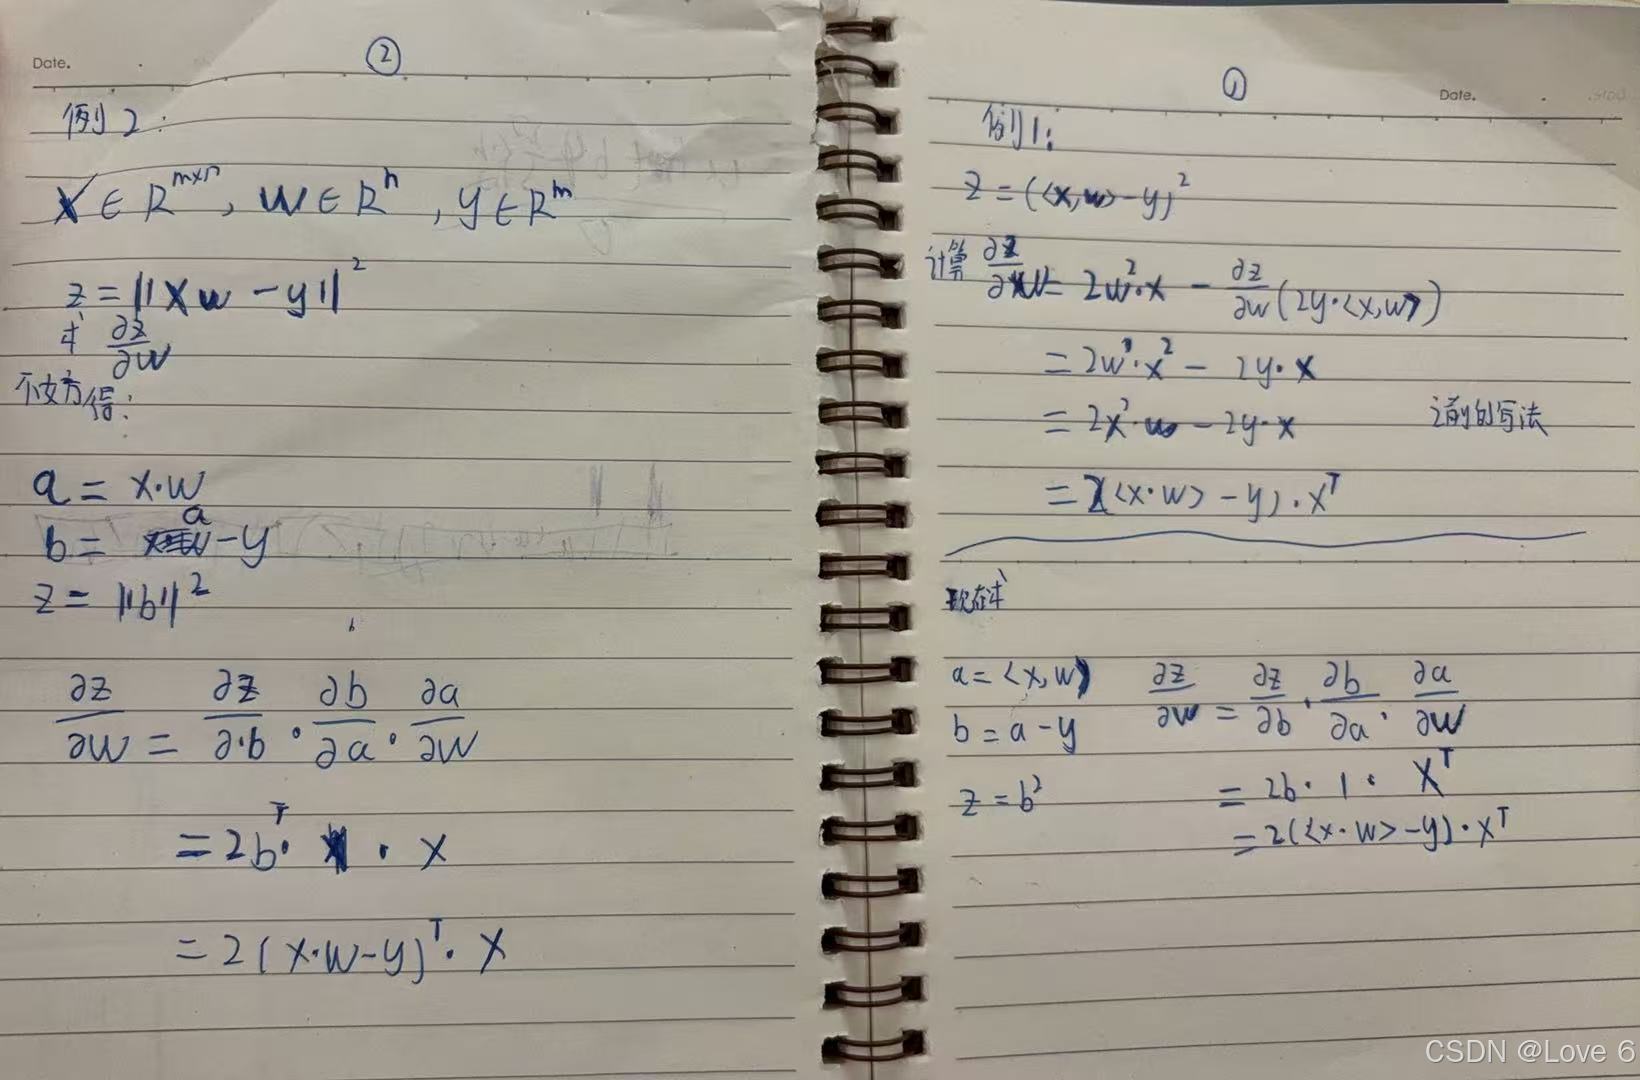 Date.
②
例2:
X ∈ R^{m×n}, w ∈ R^n, y ∈ R^m
z = ||Xw - y||^2
求 ∂z/∂w
得:
a = x·w
b = a - y
z = ||b||^2
∂z/∂w = ∂z/∂·b · ∂b/∂a · ∂a/∂w
= 2b^T · · x
= 2(x·w-y)^T · x
①
Date.
例1:
z = (<x,w> - y)^2
计算 ∂z/∂w = 2w^2·x - ∂z/∂w (2y·<x,w>)
= 2w·x^2 - 2y·x
= 2x^2·w - 2y·x 之前的写法
= 2(<x·w> - y)·x^T
现在求
a = <x,w> ∂z/∂w = ∂z/∂b · ∂b/∂a · ∂a/∂w
b = a - y
z = b^2 = 2b · 1 · X^T
= 2(<x·w> - y)·x^T
CSDN @Love 6